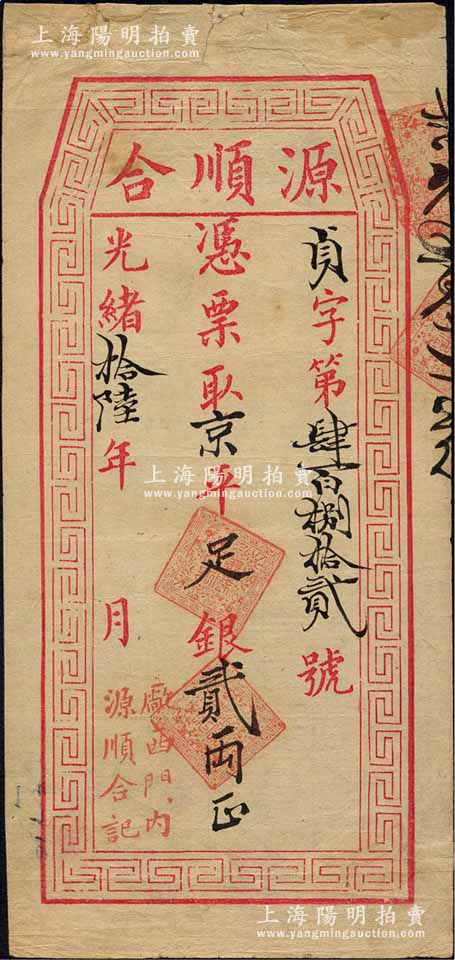 上海陽明拍賣
www.yangmingauction.com
源順合
貞字第肆百捌拾貳號
憑票取京平足銀貳兩正
光緒拾陸年 月
廠西門內
源順合記
上海陽明拍賣
www.yangmingauction.com
上海陽明拍賣
www.yangmingauction.com